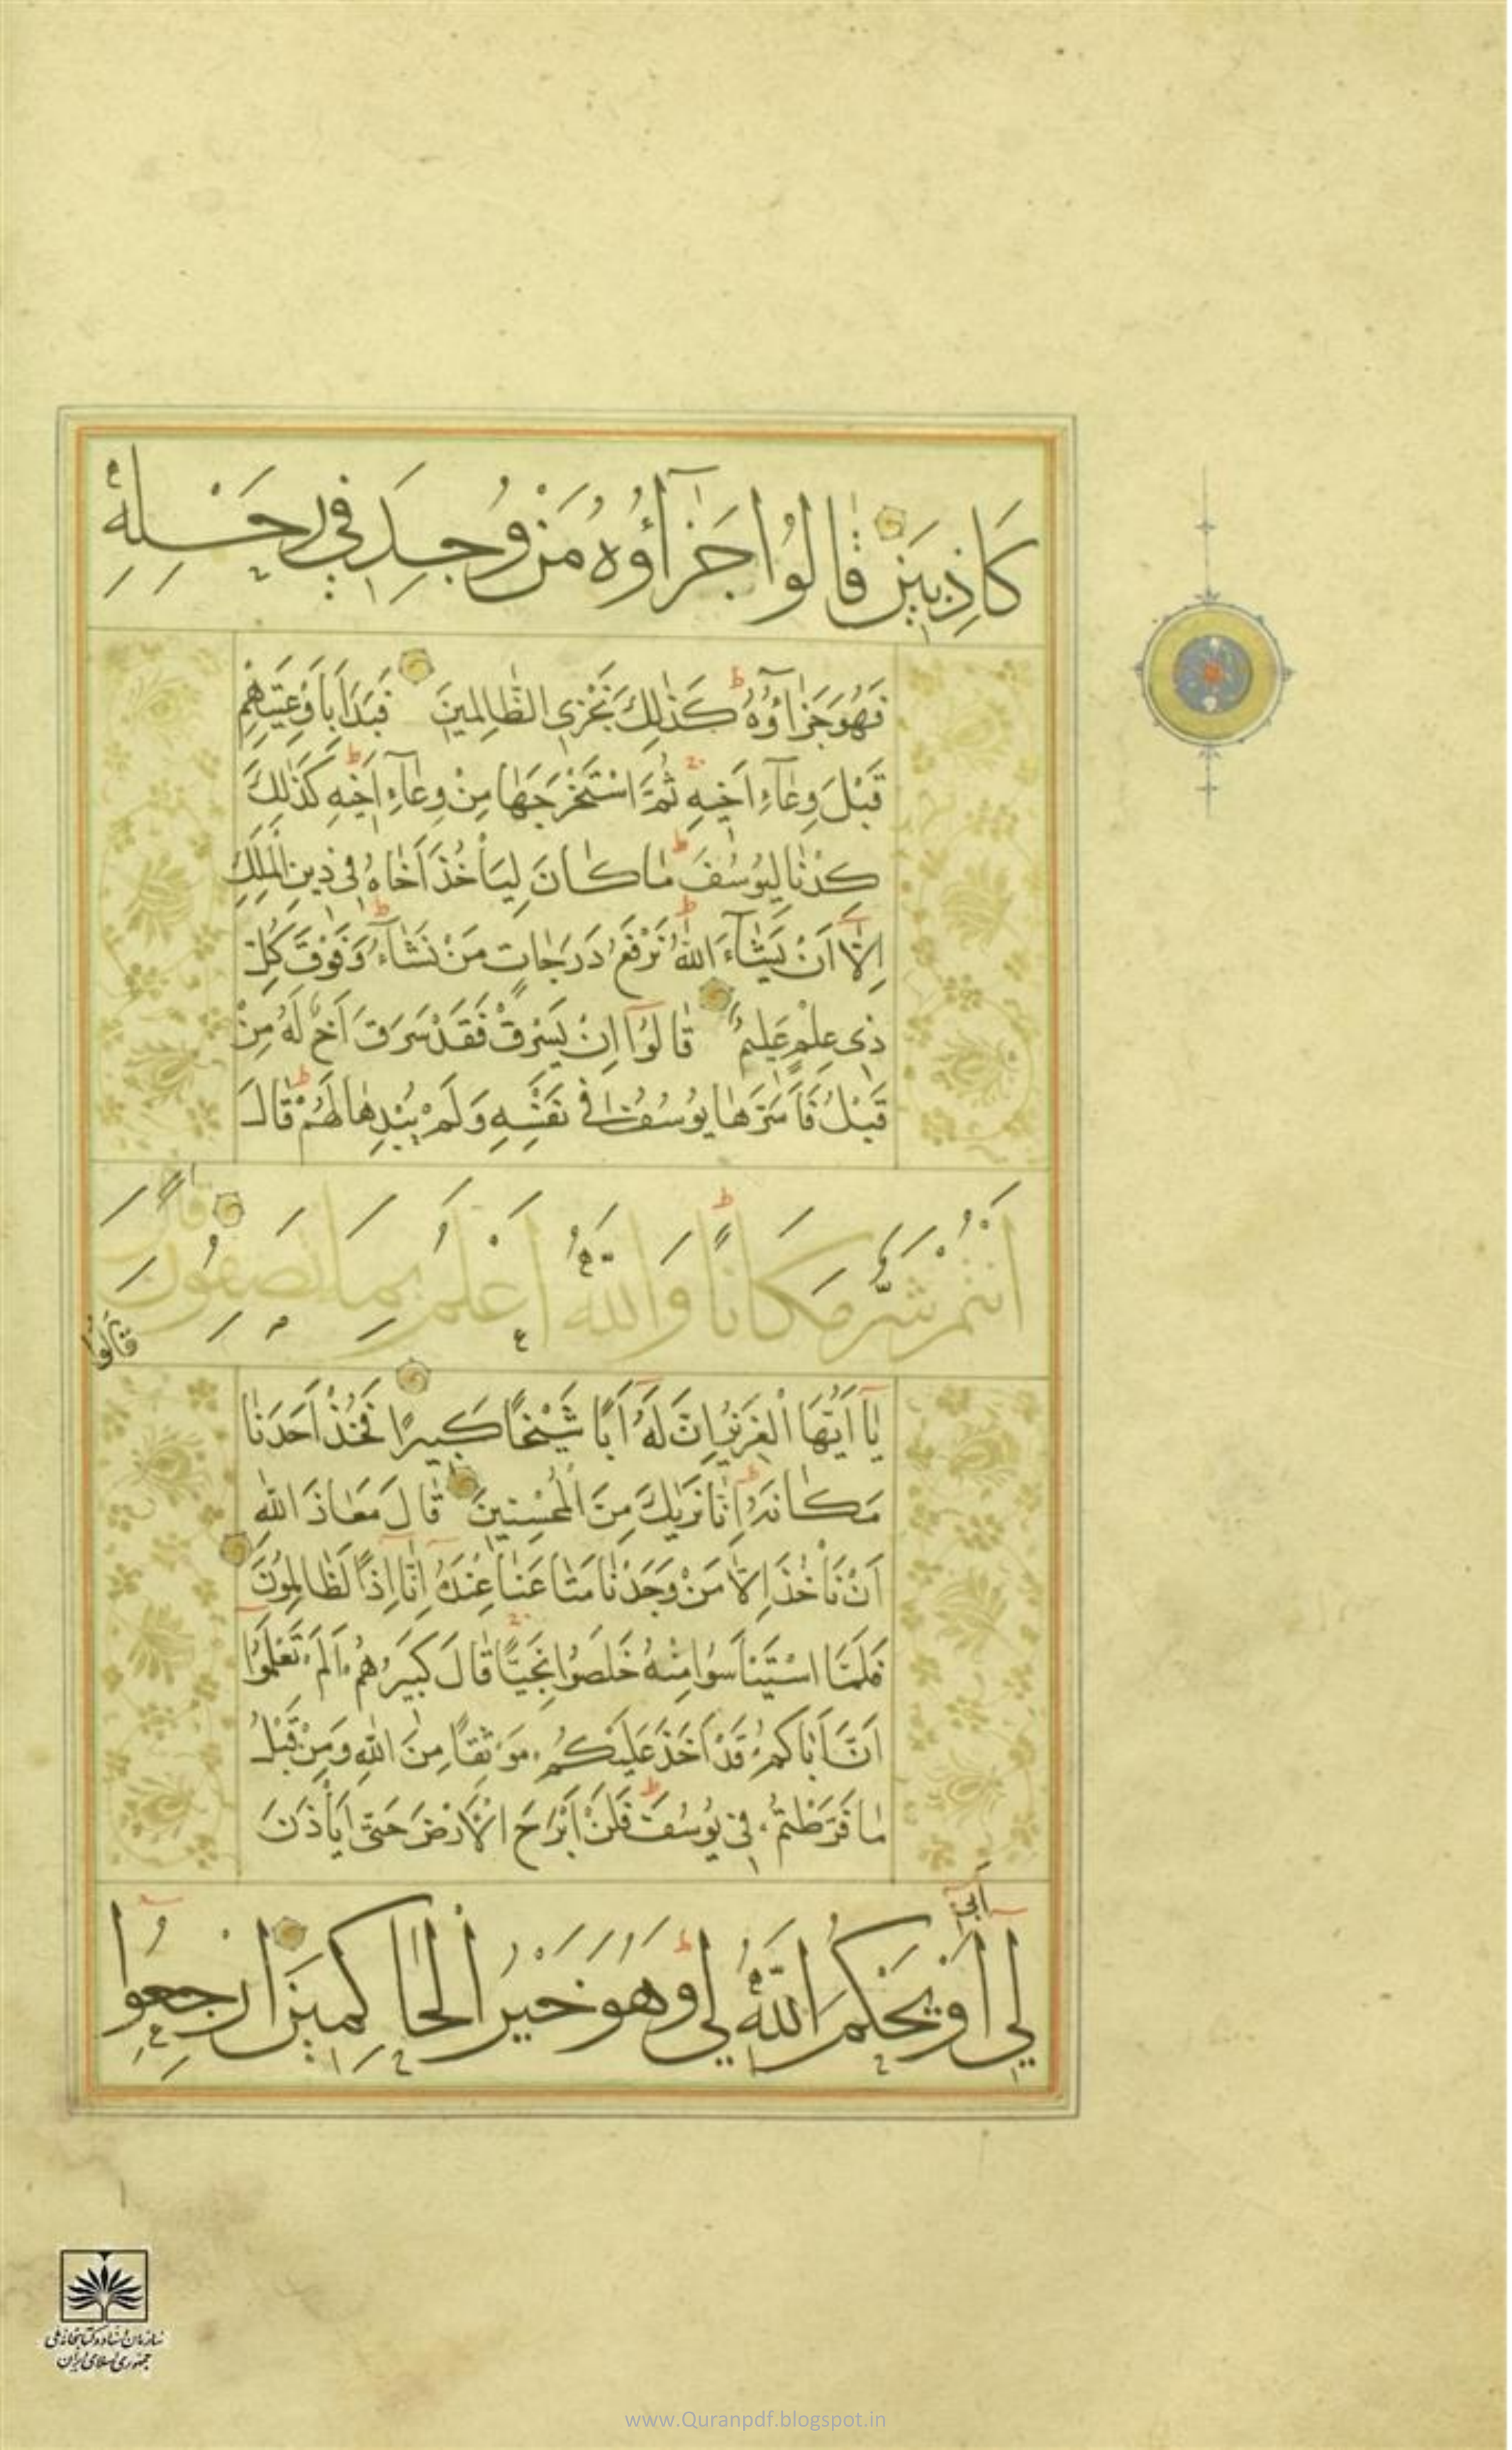 كَاذِبِينَ قَالُوا جَزَآؤُهُ مَنْ وُجِدَ فِي رَحْلِهِ
فَهُوَ جَزَآؤُهُ كَذٰلِكَ نَجْزِي الظَّالِمِينَ فَبَدَاَ بِاَوْعِيَتِهِمْ
قَبْلَ وِعَآءِ اَخِيهِ ثُمَّ اسْتَخْرَجَهَا مِنْ وِعَآءِ اَخِيهِ كَذٰلِكَ
كِدْنَا لِيُوسُفَ مَا كَانَ لِيَأْخُذَ اَخَاهُ فِي دِينِ الْمَلِكِ
اِلَّآ اَنْ يَشَآءَ اللهُ نَرْفَعُ دَرَجَاتٍ مَنْ نَشَآءُ وَفَوْقَ كُلِّ
ذِي عِلْمٍ عَلِيمٌ قَالُوٓا اِنْ يَسْرِقْ فَقَدْ سَرَقَ اَخٌ لَهُ مِنْ
قَبْلُ فَاَسَرَّهَا يُوسُفُ فِي نَفْسِهِ وَلَمْ يُبْدِهَا لَهُمْ قَالَ
اَنْتُمْ شَرٌّ مَكَانًا وَاللهُ اَعْلَمُ بِمَا تَصِفُونَ
قَالُوا
يَآ اَيُّهَا الْعَزِيزُ اِنَّ لَهُٓ اَبًا شَيْخًا كَبِيرًا فَخُذْ اَحَدَنَا
مَكَانَهُ اِنَّا نَرٰيكَ مِنَ الْمُحْسِنِينَ قَالَ مَعَاذَ اللهِ
اَنْ نَأْخُذَ اِلَّا مَنْ وَجَدْنَا مَتَاعَنَا عِنْدَهُٓ اِنَّآ اِذًا لَظَالِمُونَ
فَلَمَّا اسْتَيْاَسُوا مِنْهُ خَلَصُوا نَجِيًّا قَالَ كَبِيرُهُمْ اَلَمْ تَعْلَمُوٓا
اَنَّ اَبَاكُمْ قَدْ اَخَذَ عَلَيْكُمْ مَوْثِقًا مِنَ اللهِ وَمِنْ قَبْلُ
مَا فَرَّطْتُمْ فِي يُوسُفَ فَلَنْ اَبْرَحَ الْاَرْضَ حَتّٰى يَأْذَنَ
لِي اَبِي اَوْ يَحْكُمَ اللهُ لِي وَهُوَ خَيْرُ الْحَاكِمِينَ ارْجِعُوا
سازمان اسناد و کتابخانه ملی
جمهوری اسلامی ایران
www.Quranpdf.blogspot.in